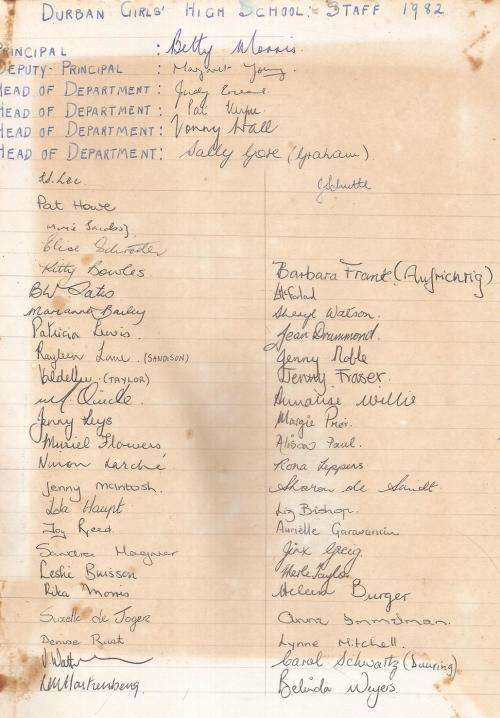 DURBAN GIRLS' HIGH SCHOOL:- STAFF 1982
PRINCIPAL : Betty Morris.
DEPUTY-PRINCIPAL : Margaret Young.
HEAD OF DEPARTMENT : Judy
HEAD OF DEPARTMENT : Pat
HEAD OF DEPARTMENT : Vonny Hall
HEAD OF DEPARTMENT : Sally Gove (Graham)
Pat Howe
Marie Jacobs
Elise Schroeder
Kitty Bowles
BW
Marianna Bailey
Patricia Lewis.
Rayleen Lane . (SANDISON)
(TAYLOR)
M. Quicke.
Jenny Keys
Muriel Flowers
Ninon Larché
Jenny McIntosh.
Lola Haupt
Joy Reed
Sandra Wagner
Leslie Buisson
Rika Morris
Suzette de Jager
Denise Rust
J. Watt
GSchutte
Barbara Frank (Aufrichtig)
Sheryl Watson.
Jean Drummond.
Jenny Noble
Jenny Fraser.
Annalise Willie
Margie Prior.
Alison Paul.
Rona Lippens
Sharon de Smidt.
Liz Bishop.
Aurielle Garavannin
Jinx Greig.
Merle Taylor
Helena Burger
Anna Immelman.
Lynne Mitchell.
Carol Schwartz (Deuring)
Belinda Weyers